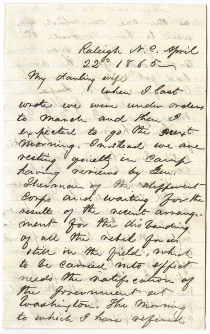 Raleigh N.C. April
22d 1865
My darling wife
when I last
wrote we were under orders
to march and then I
expected to go the next
morning. Instead we are
resting quietly in Camp
having reviews by Gen.
Sherman of the different
Corps and waiting for the
result of the recent arrange-
ment for the disbanding
of all the rebel forces
still in the field, which
to be carried into effect
needs the ratification of
the government at
Washington. The morning
to which I have referred